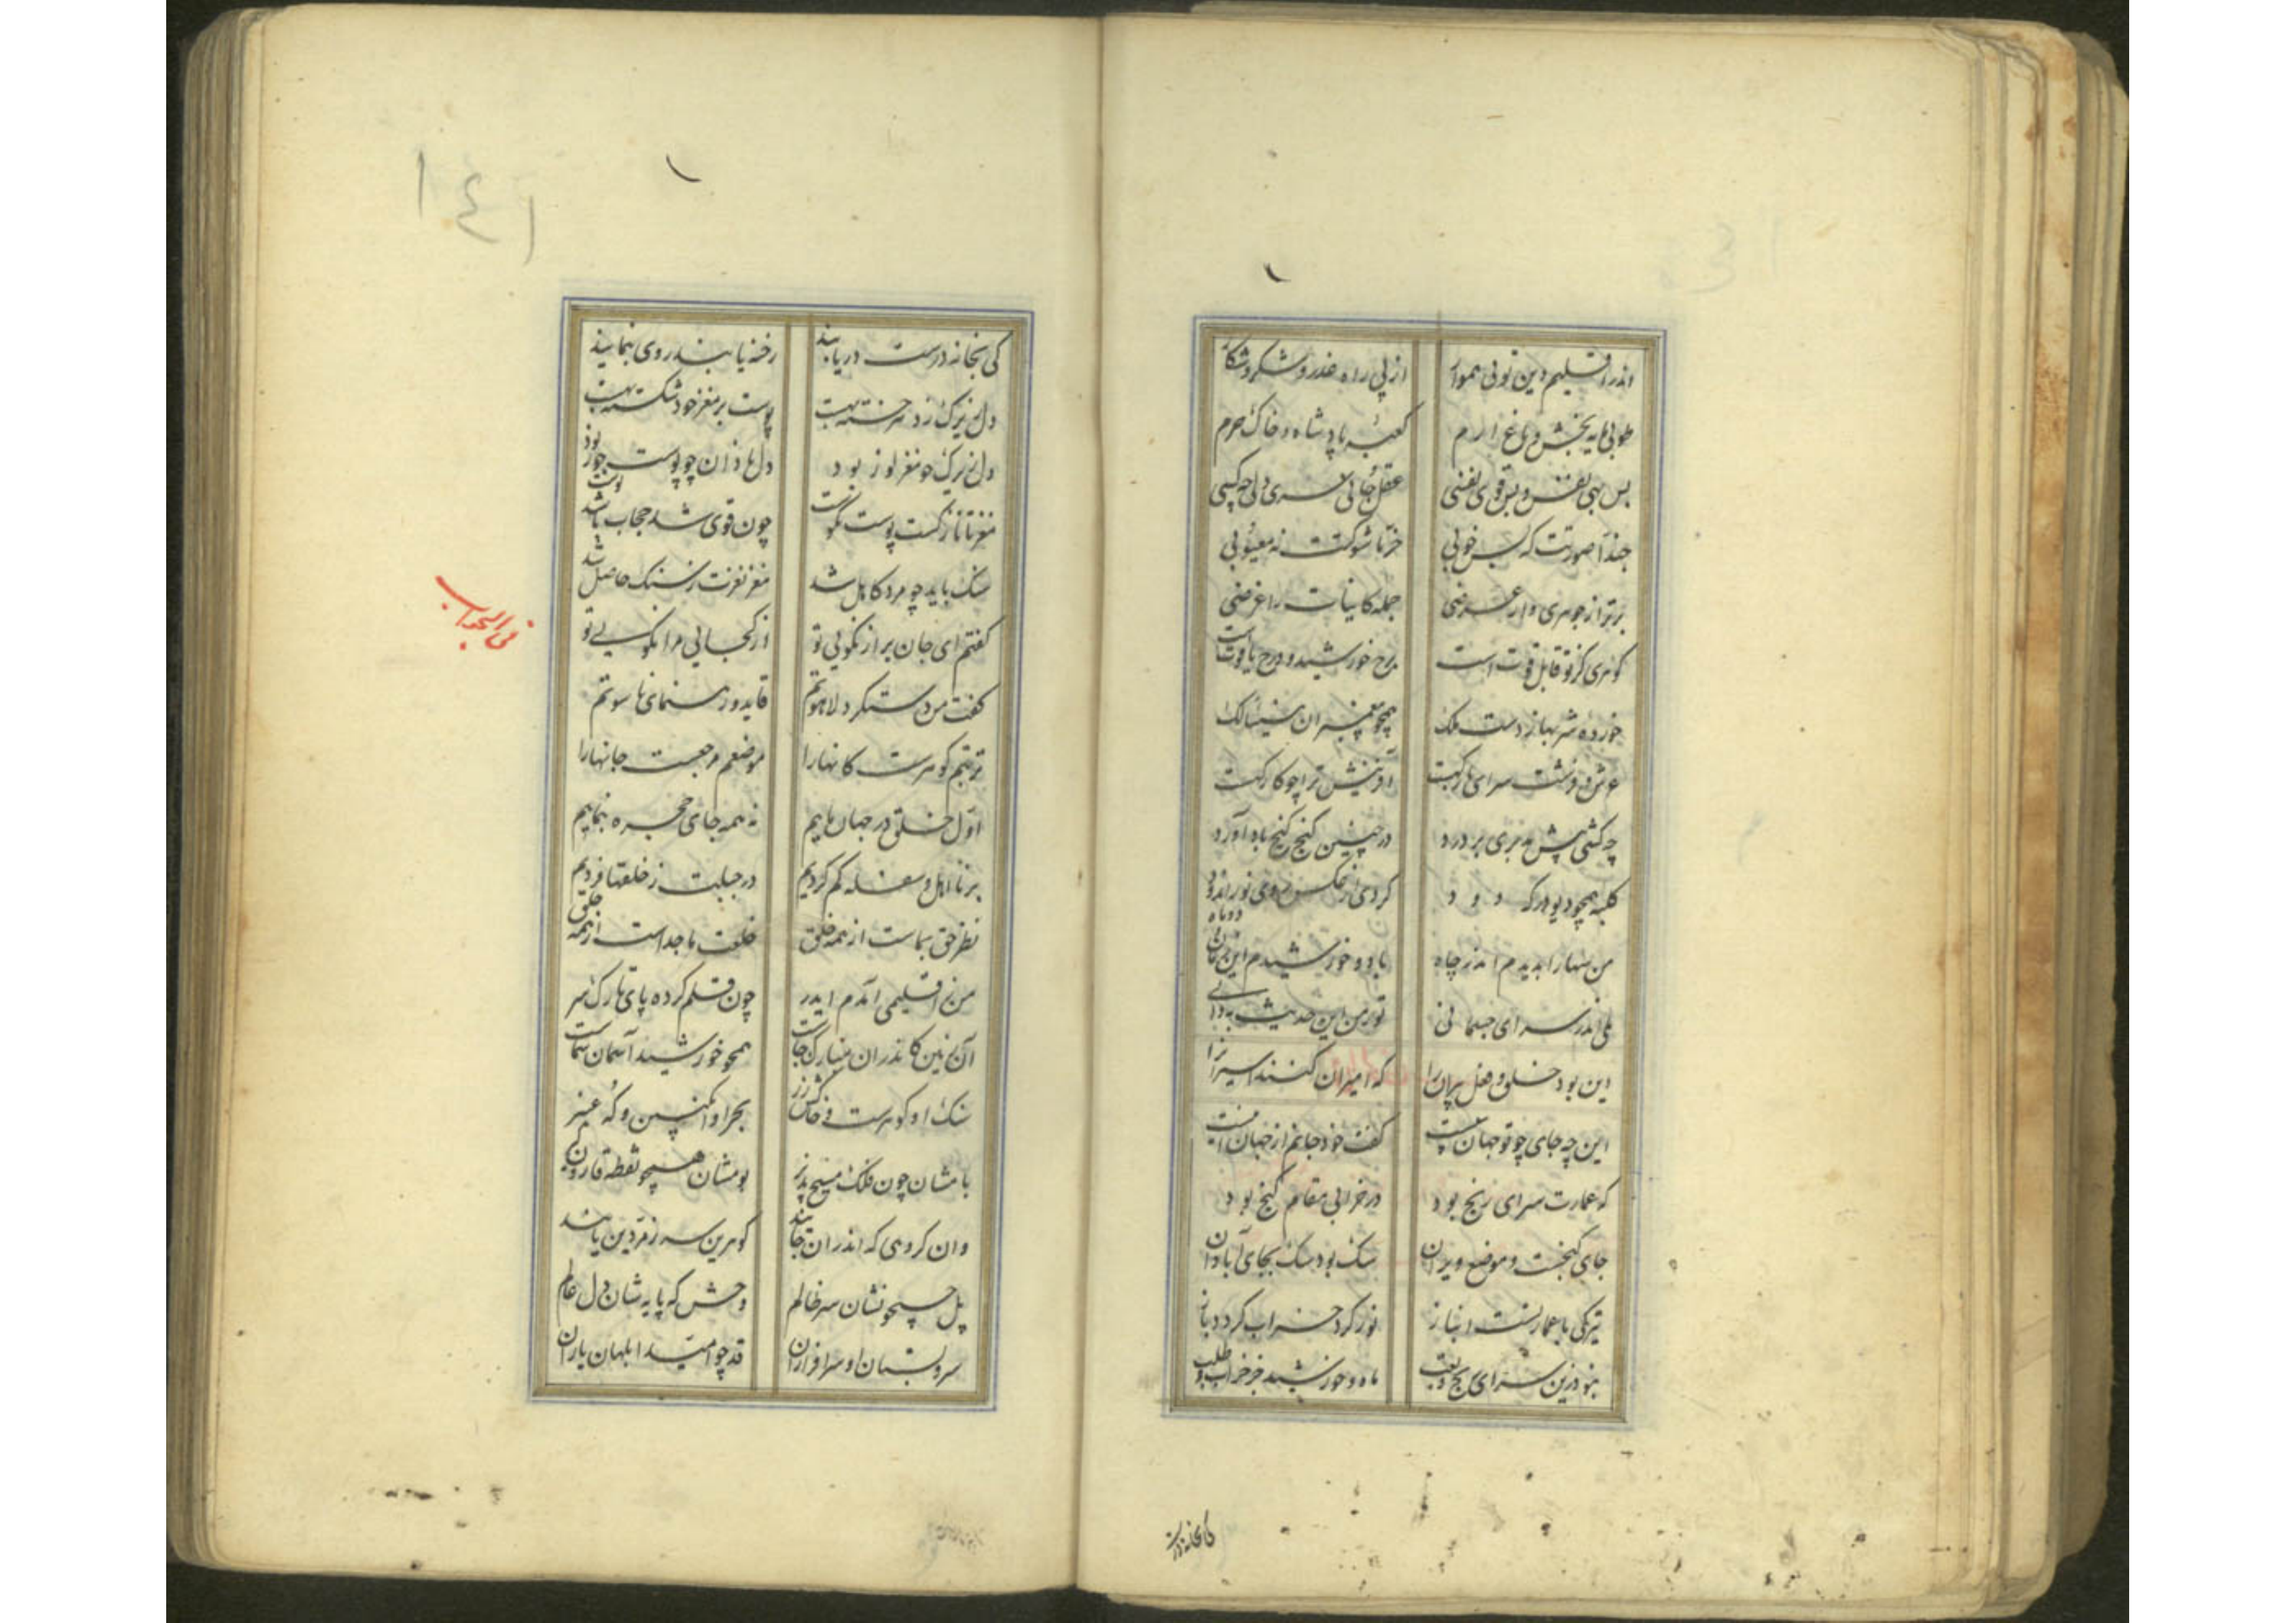 اندر اقلیم دین تویی هموار از پی راه عذر و شکر و شکار
طوبی مایه بخش باغ ارم کعبهٔ پادشاه و خاک حرم
بس بهی نفس و بس قوی نفسی عقل جانی دلی چه کسی
حبذا صورتت که بس خوبی خرّما شوکتت نه معیوبی
برتر از جوهری و از عرضی جمله کاینات را غرضی
گوهری کز تو قابل قوت است برج خورشید و درج یاقوت است
خورده شربها ز دست ملک همچو پیغمبران
عرش و فرشت سرای بارگهت آفرینش ترا چو کارگهت
چه کشی پیش مدبری بر درد در چنین کنج گنج باد آورد
کلبه همچو دیو در که و دود کردی از عکس روی نوراندود
من بها را بدیدم اندر چاه با دو خورشید
لی اندر سرای جسمانی تو ز من این حدیث به دانی
این بود خلق و فعل پیران را که امیران کنند اسیران را
این چه جای چو تو جهان گفت خود جانم از جهان
که عمارت سرای رنج بود در خرابی مقام گنج بود
جای گنجست موضع ویران سگ بود سگ بجای آبادان
تیرگی با عمارتست انباز نور گرد خراب گردد باز
بنو درین سرای ماه و خورشید جز خراب طلب
کی بخانه درست
کی بخانه درست دریابند رخنه یابند روی بنمایند
دل زیرک ز درد خسته بهست پوست بر مغز خود شکسته بهست
دل زیرک چو مغز لوز بود دل نادان چو پوست جوز بود
مغز تا نازکست پوست نکوست چون قوی شد حجاب باشد اوست
سنگ باید چو مرد کامل شد مغز نغزت ز سنگ حاصل شد
گفتم ای جان پر از نکویی تو از کجایی مرا نگویی تو
فی الجواب
گفت من دستگرد لاهوتم قاید و رهنمای ناسوتم
تربتم گوهرست کانها را موضعم مرجعست جانها را
اول خلق در جهان ماییم نه همه جای چهره بنماییم
بر نااهل و سفله کم گردیم در جبلت ز خلقها فردیم
نظر حق بماست از همه خلق خلعت ما جداست از همه خلق
من ز اقلیمی آمدم ایدر چون قلم کرده پای تارک سر
آن زمین کاندران مبارک جاست همچو خورشید آسمان سماست
سنگ او گوهرست و خاکش زر بحر او انگبین و که عنبر
بامشان چون فلک مسیح پذیر بومشان همچو نقطه قارون گیر
وان گروهی که اندر آن جایند گوهرین سر زمردین پایند
پیل حسیشان سر ظالم وحش که پایه شان دل عالم
سرو بستان او سرافرازان قد چو امید ابلهان یازان
۱۴۱